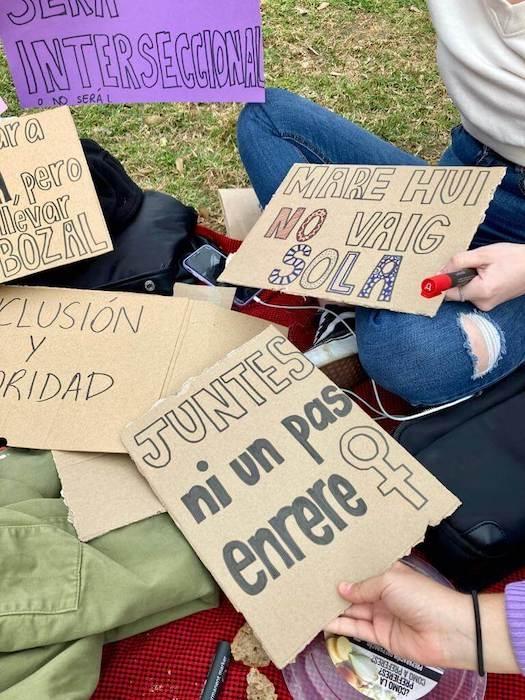 SERÁ
INTERSECCIONAL
O NO SERÁ!
ara
, pero
llevar
BOZAL
CLUSIÓN
Y
ORIDAD
MARE HUI
NO VAIG
SOLA
JUNTES
ni un pas
enrere
permanent marker
¿CÓMO LA
PREFIERES?
COMO A
PREFERES?